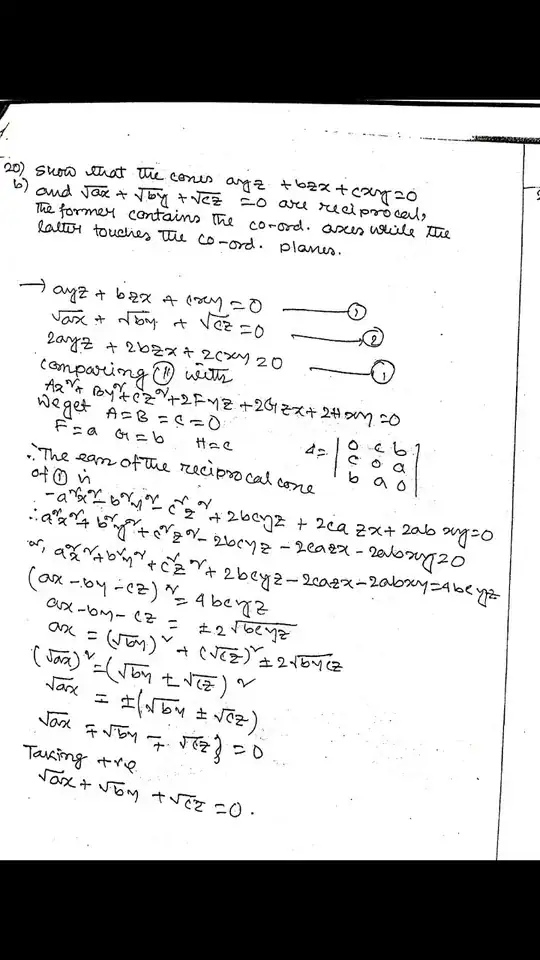 20) Show that the cones ayz + bzx + cxy = 0
b) and √ax + √by + √cz = 0 are reciprocal,
the former contains the co-ord. axes while the
latter touches the co-ord. planes.
→ ayz + bzx + cxy = 0 ——— ①
√ax + √by + √cz = 0 ——— ②
2ayz + 2bzx + 2cxy = 0 ——— ①
comparing ⑪ with
Ax² + By² + Cz² + 2Fyz + 2Gzx + 2Hxy = 0
We get A = B = C = 0
F = a G = b H = c
Δ = | 0 c b |
| c 0 a |
| b a 0 |
∴ The eqn of the reciprocal cone
of ① is
-a²x² - b²y² - c²z² + 2bcyz + 2ca zx + 2ab xy = 0
∴ a²x² + b²y² + c²z² - 2bcyz - 2cazx - 2abxy = 0
or, a²x² + b²y² + c²z² + 2bcyz - 2cazx - 2abxy = 4bcyz
(ax - by - cz)² = 4bcyz
ax - by - cz = ± 2√bcyz
ax = (√by)² + (√cz)² ± 2√bycz
(√ax)² = (√by ± √cz)²
√ax = ± (√by ± √cz)
√ax ∓ √by ∓ √cz} = 0
Taking +ve
√ax + √by + √cz = 0.